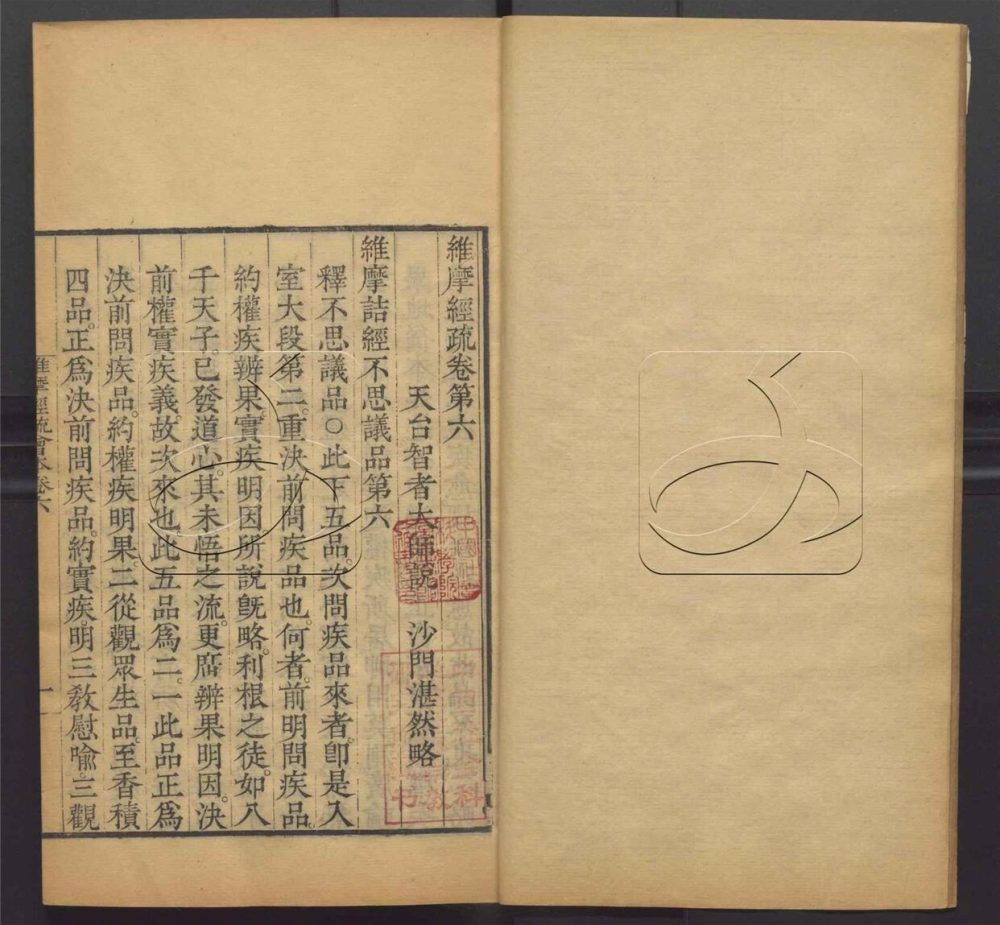 維摩經疏卷第六
天台智者大師說 沙門湛然略
維摩詰經不思議品第六
釋不思議品○此下五品。次問疾品來者。卽是入
室大段第二。重決前問疾品也。何者。前明問疾品。
約權疾辨果。實疾明因。所說旣略。利根之徒。如八
千天子。已發道心。其未悟之流。更廣辨果明因。決
前權實疾義。故次來也。此五品爲二。一此品正爲
決前問疾品。約權疾明果。二從觀眾生品。至香積
四品。正爲決前問疾品。約實疾。明三敎慰喻。三觀
維摩經疏會本卷六
一